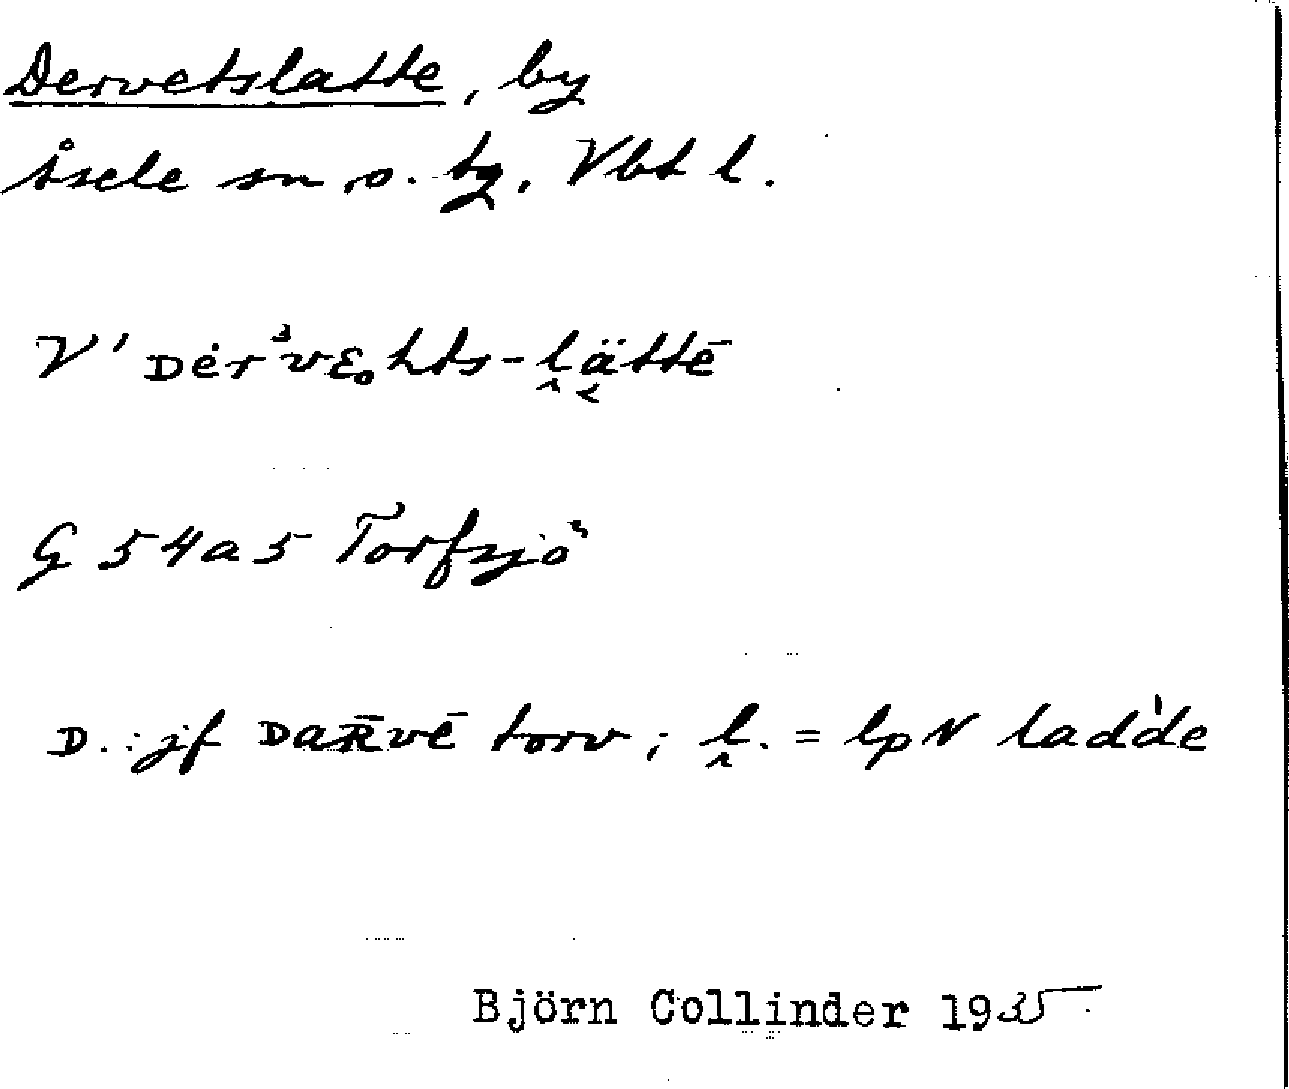 Dervetslatte, by
Åsele sn. o. tg. Vbt l.
V' ᴅėrᵊvɛ̥hts-ḽä̬ttē
G 54a5 Torfsjö
D. : jf ᴅaʀ̄vē torv ; ḽ. = lpN ladd'e
Björn Collinder 1935